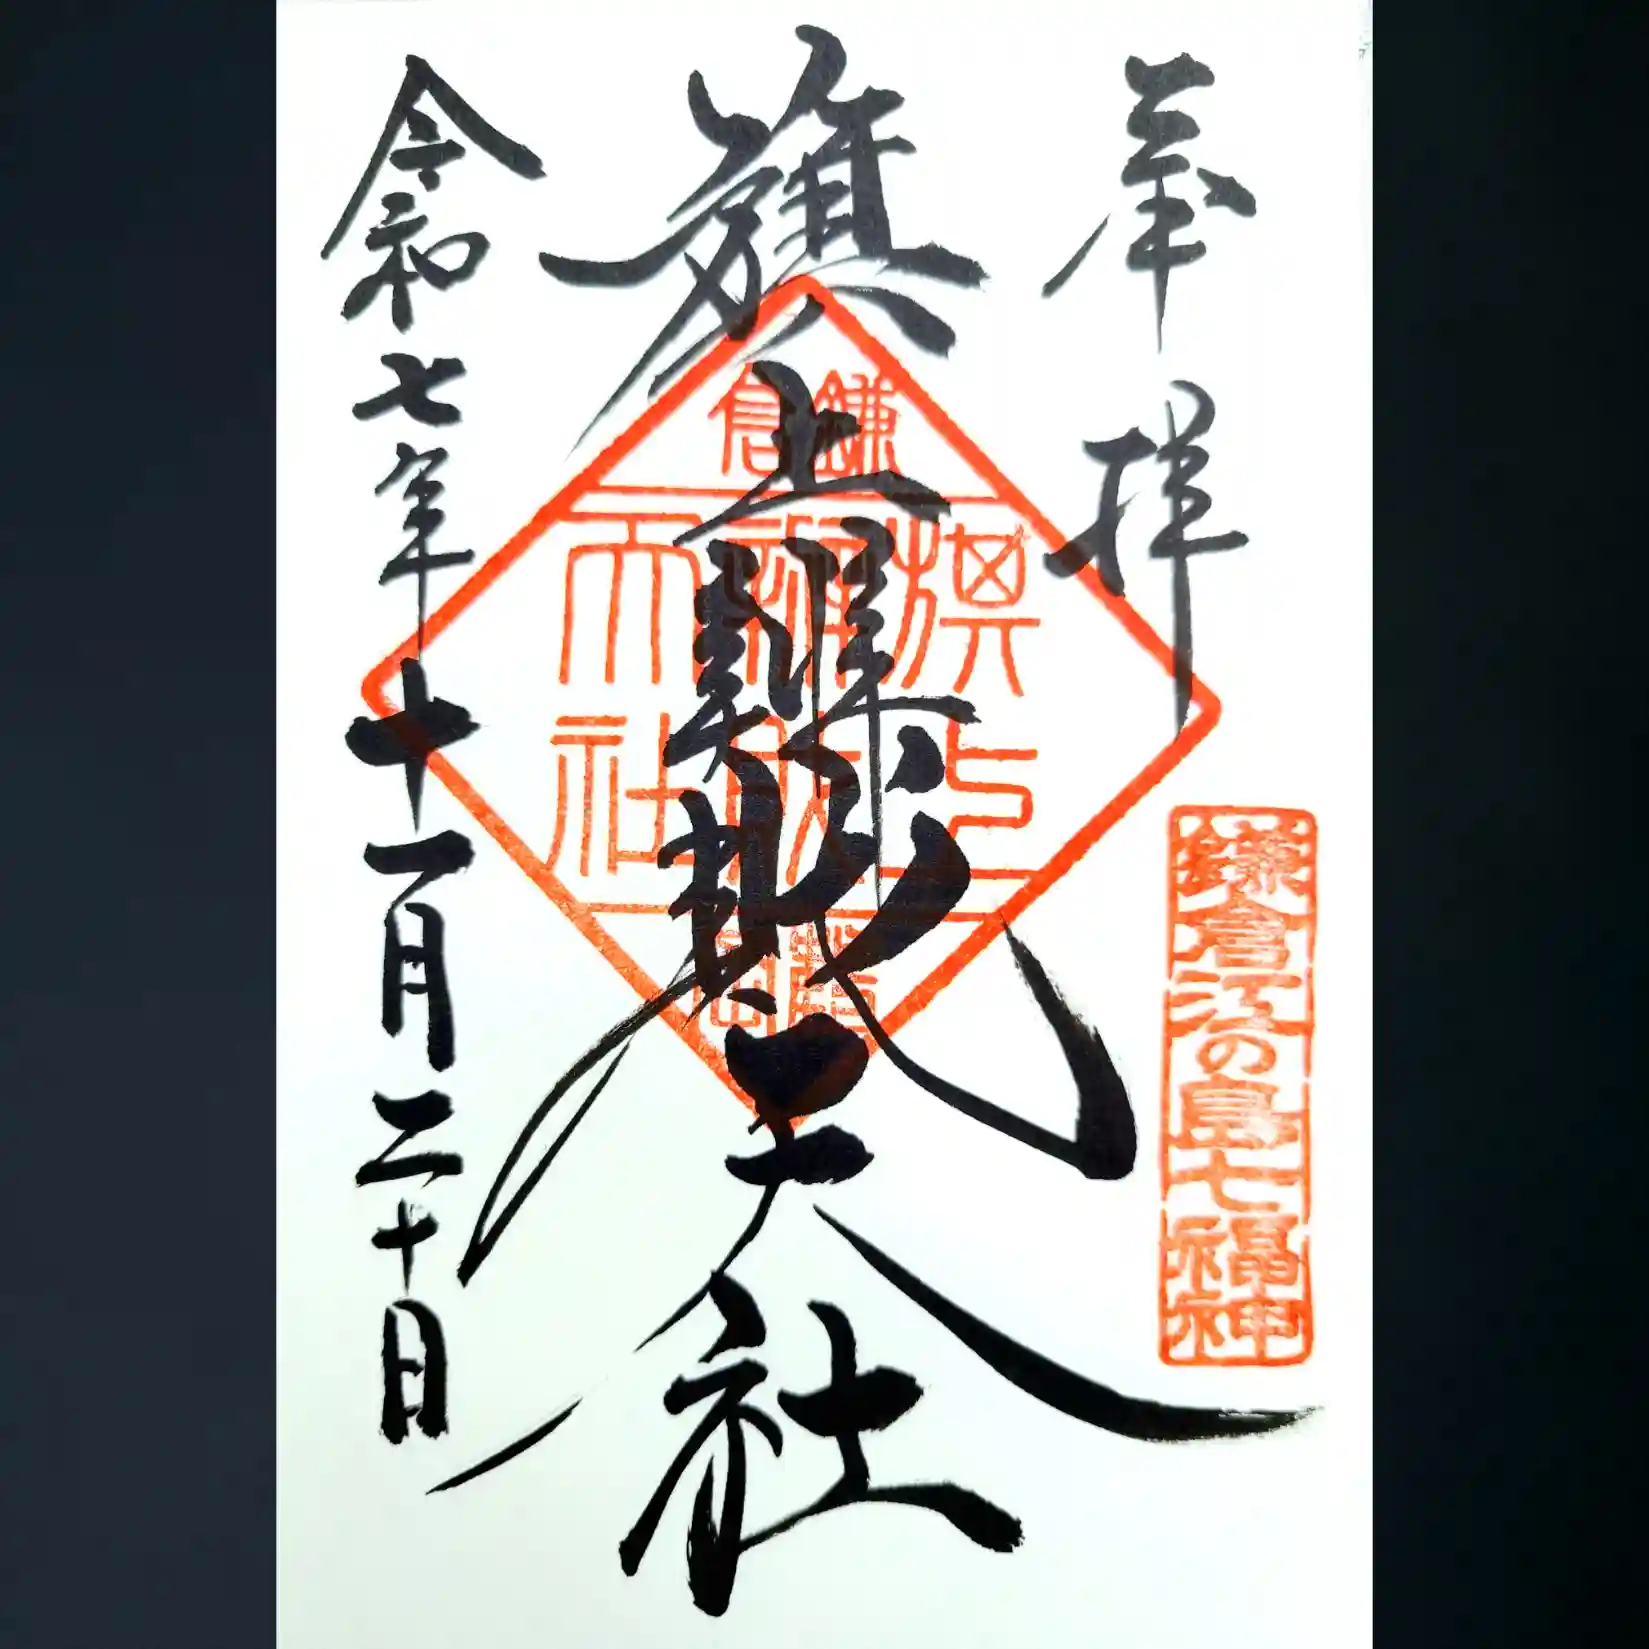 奉拝
鎌倉江の島七福神
旗上辨財天社
鎌倉
旗上
辨財
天社
令和七年十一月二十日